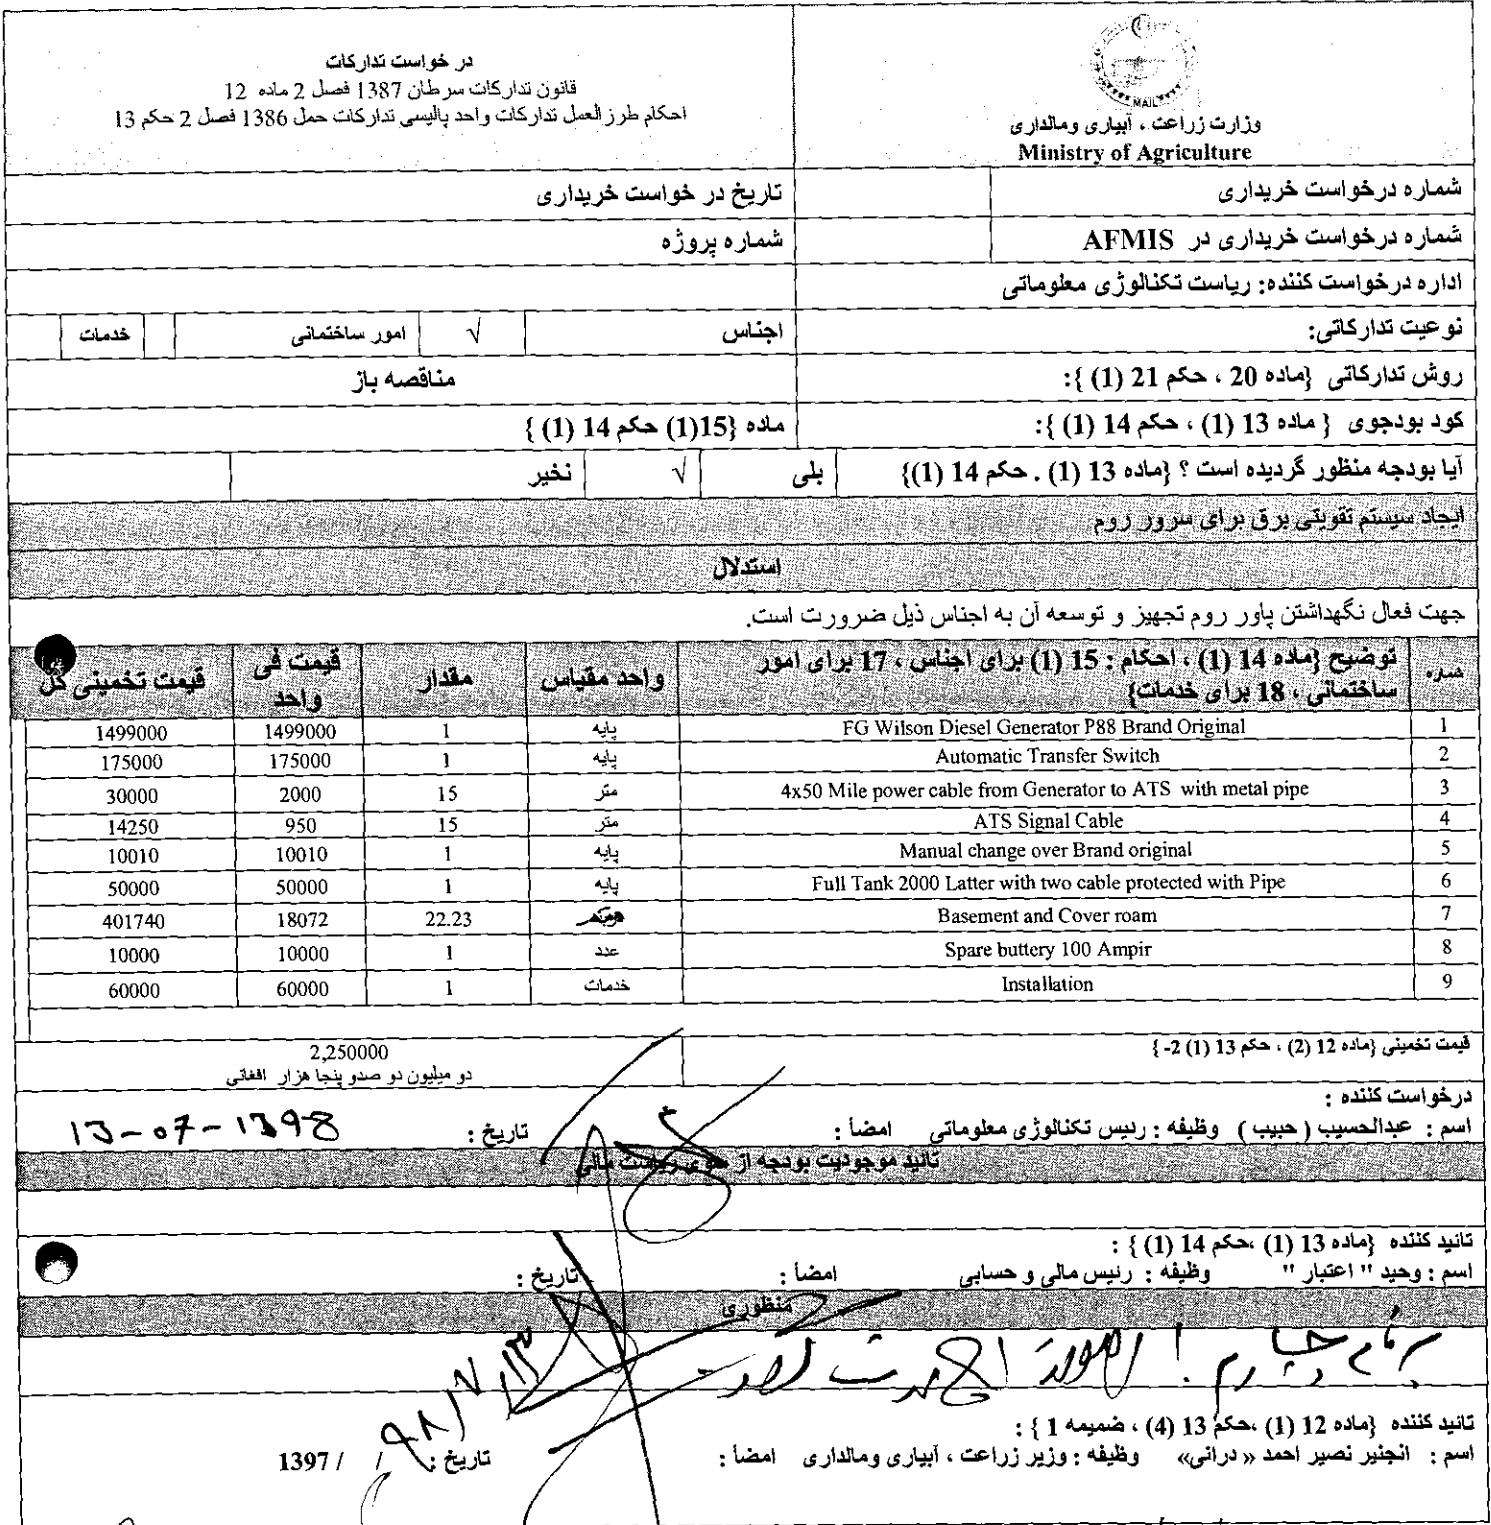 MAIL
وزارت زراعت ، آبیاری ومالداری
Ministry of Agriculture
در خواست تدارکات
قانون تدارکات سرطان 1387 فصل 2 ماده 12
احکام طرز العمل تدارکات واحد پالیسی تدارکات حمل 1386 فصل 2 حکم 13
شماره درخواست خریداری تاریخ در خواست خریداری
شماره درخواست خریداری در AFMIS شماره پروژه
اداره درخواست کننده: ریاست تکنالوژی معلوماتی
نوعیت تدارکاتی: اجناس √ امور ساختمانی خدمات
روش تدارکاتی {ماده 20 ، حکم 21 (1) }: مناقصه باز
کود بودجوی { ماده 13 (1) ، حکم 14 (1) }: ماده {15(1) حکم 14 (1) }
آیا بودجه منظور گردیده است ؟ {ماده 13 (1) . حکم 14 (1)} بلی √ نخیر
ایجاد سیستم تقویتی برق برای سرور روم
استدلال
جهت فعال نگهداشتن پاور روم تجهیز و توسعه آن به اجناس ذیل ضرورت است.
شماره توضیح {ماده 14 (1) ، احکام : 15 (1) برای اجناس ، 17 برای امور ساختمانی ، 18 برای خدمات} واحد مقیاس مقدار قیمت فی واحد قیمت تخمینی کل
1 FG Wilson Diesel Generator P88 Brand Original پایه 1 1499000 1499000
2 Automatic Transfer Switch پایه 1 175000 175000
3 4x50 Mile power cable from Generator to ATS with metal pipe متر 15 2000 30000
4 ATS Signal Cable متر 15 950 14250
5 Manual change over Brand original پایه 1 10010 10010
6 Full Tank 2000 Latter with two cable protected with Pipe پایه 1 50000 50000
7 Basement and Cover roam 22.23 18072 401740
8 Spare buttery 100 Ampir عدد 1 10000 10000
9 Installation خدمات 1 60000 60000
قیمت تخمینی {ماده 12 (2) ، حکم 13 (1) 2- } 2,250000
دو میلیون دو صدو پنجا هزار افغانی
درخواست کننده :
اسم : عبدالحسیب ( حبیب ) وظیفه : رئیس تکنالوژی معلوماتی امضأ : تاریخ : 13-07-1398
تائید موجودیت بودجه از سوی ریاست مالی
تائید کننده {ماده 13 (1) ،حکم 14 (1) } :
اسم : وحید " اعتبار " وظیفه : رئیس مالی و حسابی امضأ : تاریخ :
منظوری
۹۸/۷/۱۳
تائید کننده {ماده 12 (1) ،حکم 13 (4) ، ضمیمه 1 } :
اسم : انجنیر نصیر احمد «درانی» وظیفه : وزیر زراعت ، آبیاری ومالداری امضأ : تاریخ : / / 1397